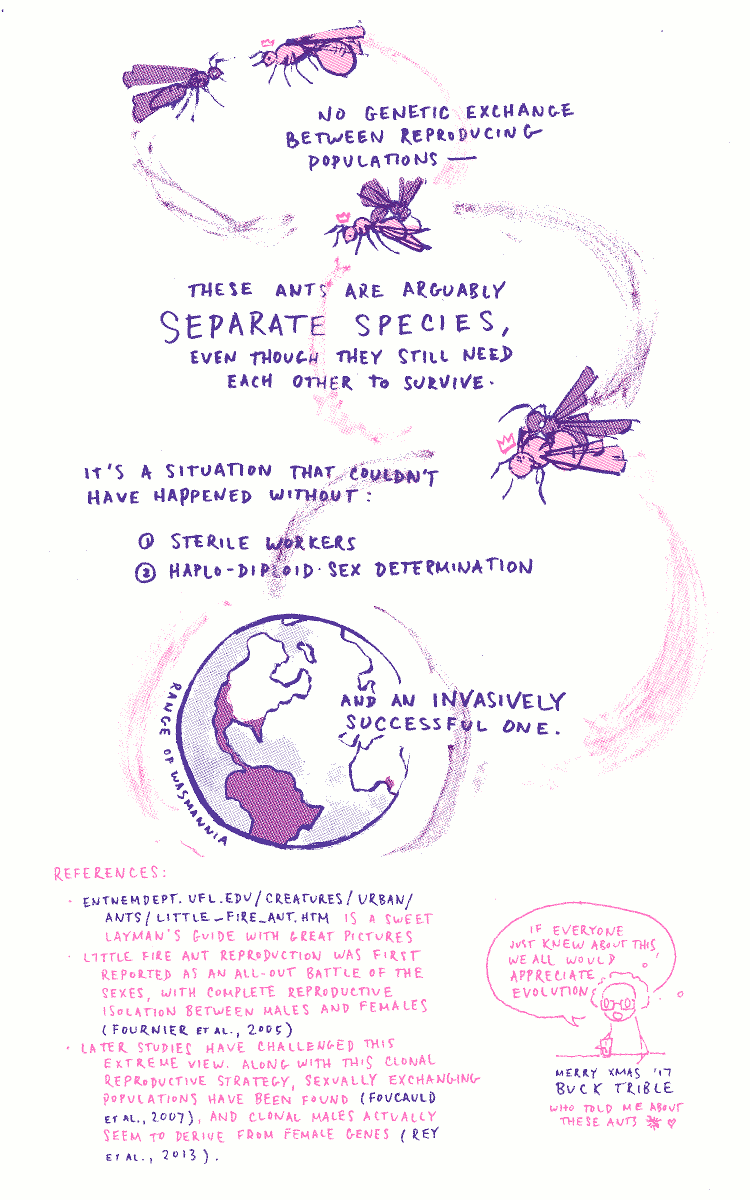 NO GENETIC EXCHANGE
BETWEEN REPRODUCING
POPULATIONS —
THESE ANTS ARE ARGUABLY
SEPARATE SPECIES,
EVEN THOUGH THEY STILL NEED
EACH OTHER TO SURVIVE.
IT'S A SITUATION THAT COULDN'T
HAVE HAPPENED WITHOUT:
① STERILE WORKERS
② HAPLO-DIPLOID SEX DETERMINATION
AND AN INVASIVELY
SUCCESSFUL ONE.
RANGE OF WASMANNIA
REFERENCES:
· ENTNEMDEPT.UFL.EDU/CREATURES/URBAN/
ANTS/LITTLE_FIRE_ANT.HTM IS A SWEET
LAYMAN'S GUIDE WITH GREAT PICTURES
· LITTLE FIRE ANT REPRODUCTION WAS FIRST
REPORTED AS AN ALL-OUT BATTLE OF THE
SEXES, WITH COMPLETE REPRODUCTIVE
ISOLATION BETWEEN MALES AND FEMALES
(FOURNIER ET AL., 2005)
· LATER STUDIES HAVE CHALLENGED THIS
EXTREME VIEW. ALONG WITH THIS CLONAL
REPRODUCTIVE STRATEGY, SEXUALLY EXCHANGING
POPULATIONS HAVE BEEN FOUND (FOUCAULD
ET AL., 2007), AND CLONAL MALES ACTUALLY
SEEM TO DERIVE FROM FEMALE GENES (REY
ET AL., 2013).
IF EVERYONE
JUST KNEW ABOUT THIS
WE ALL WOULD
APPRECIATE
EVOLUTION
MERRY XMAS '17
BUCK TRIBLE
WHO TOLD ME ABOUT
THESE ANTS